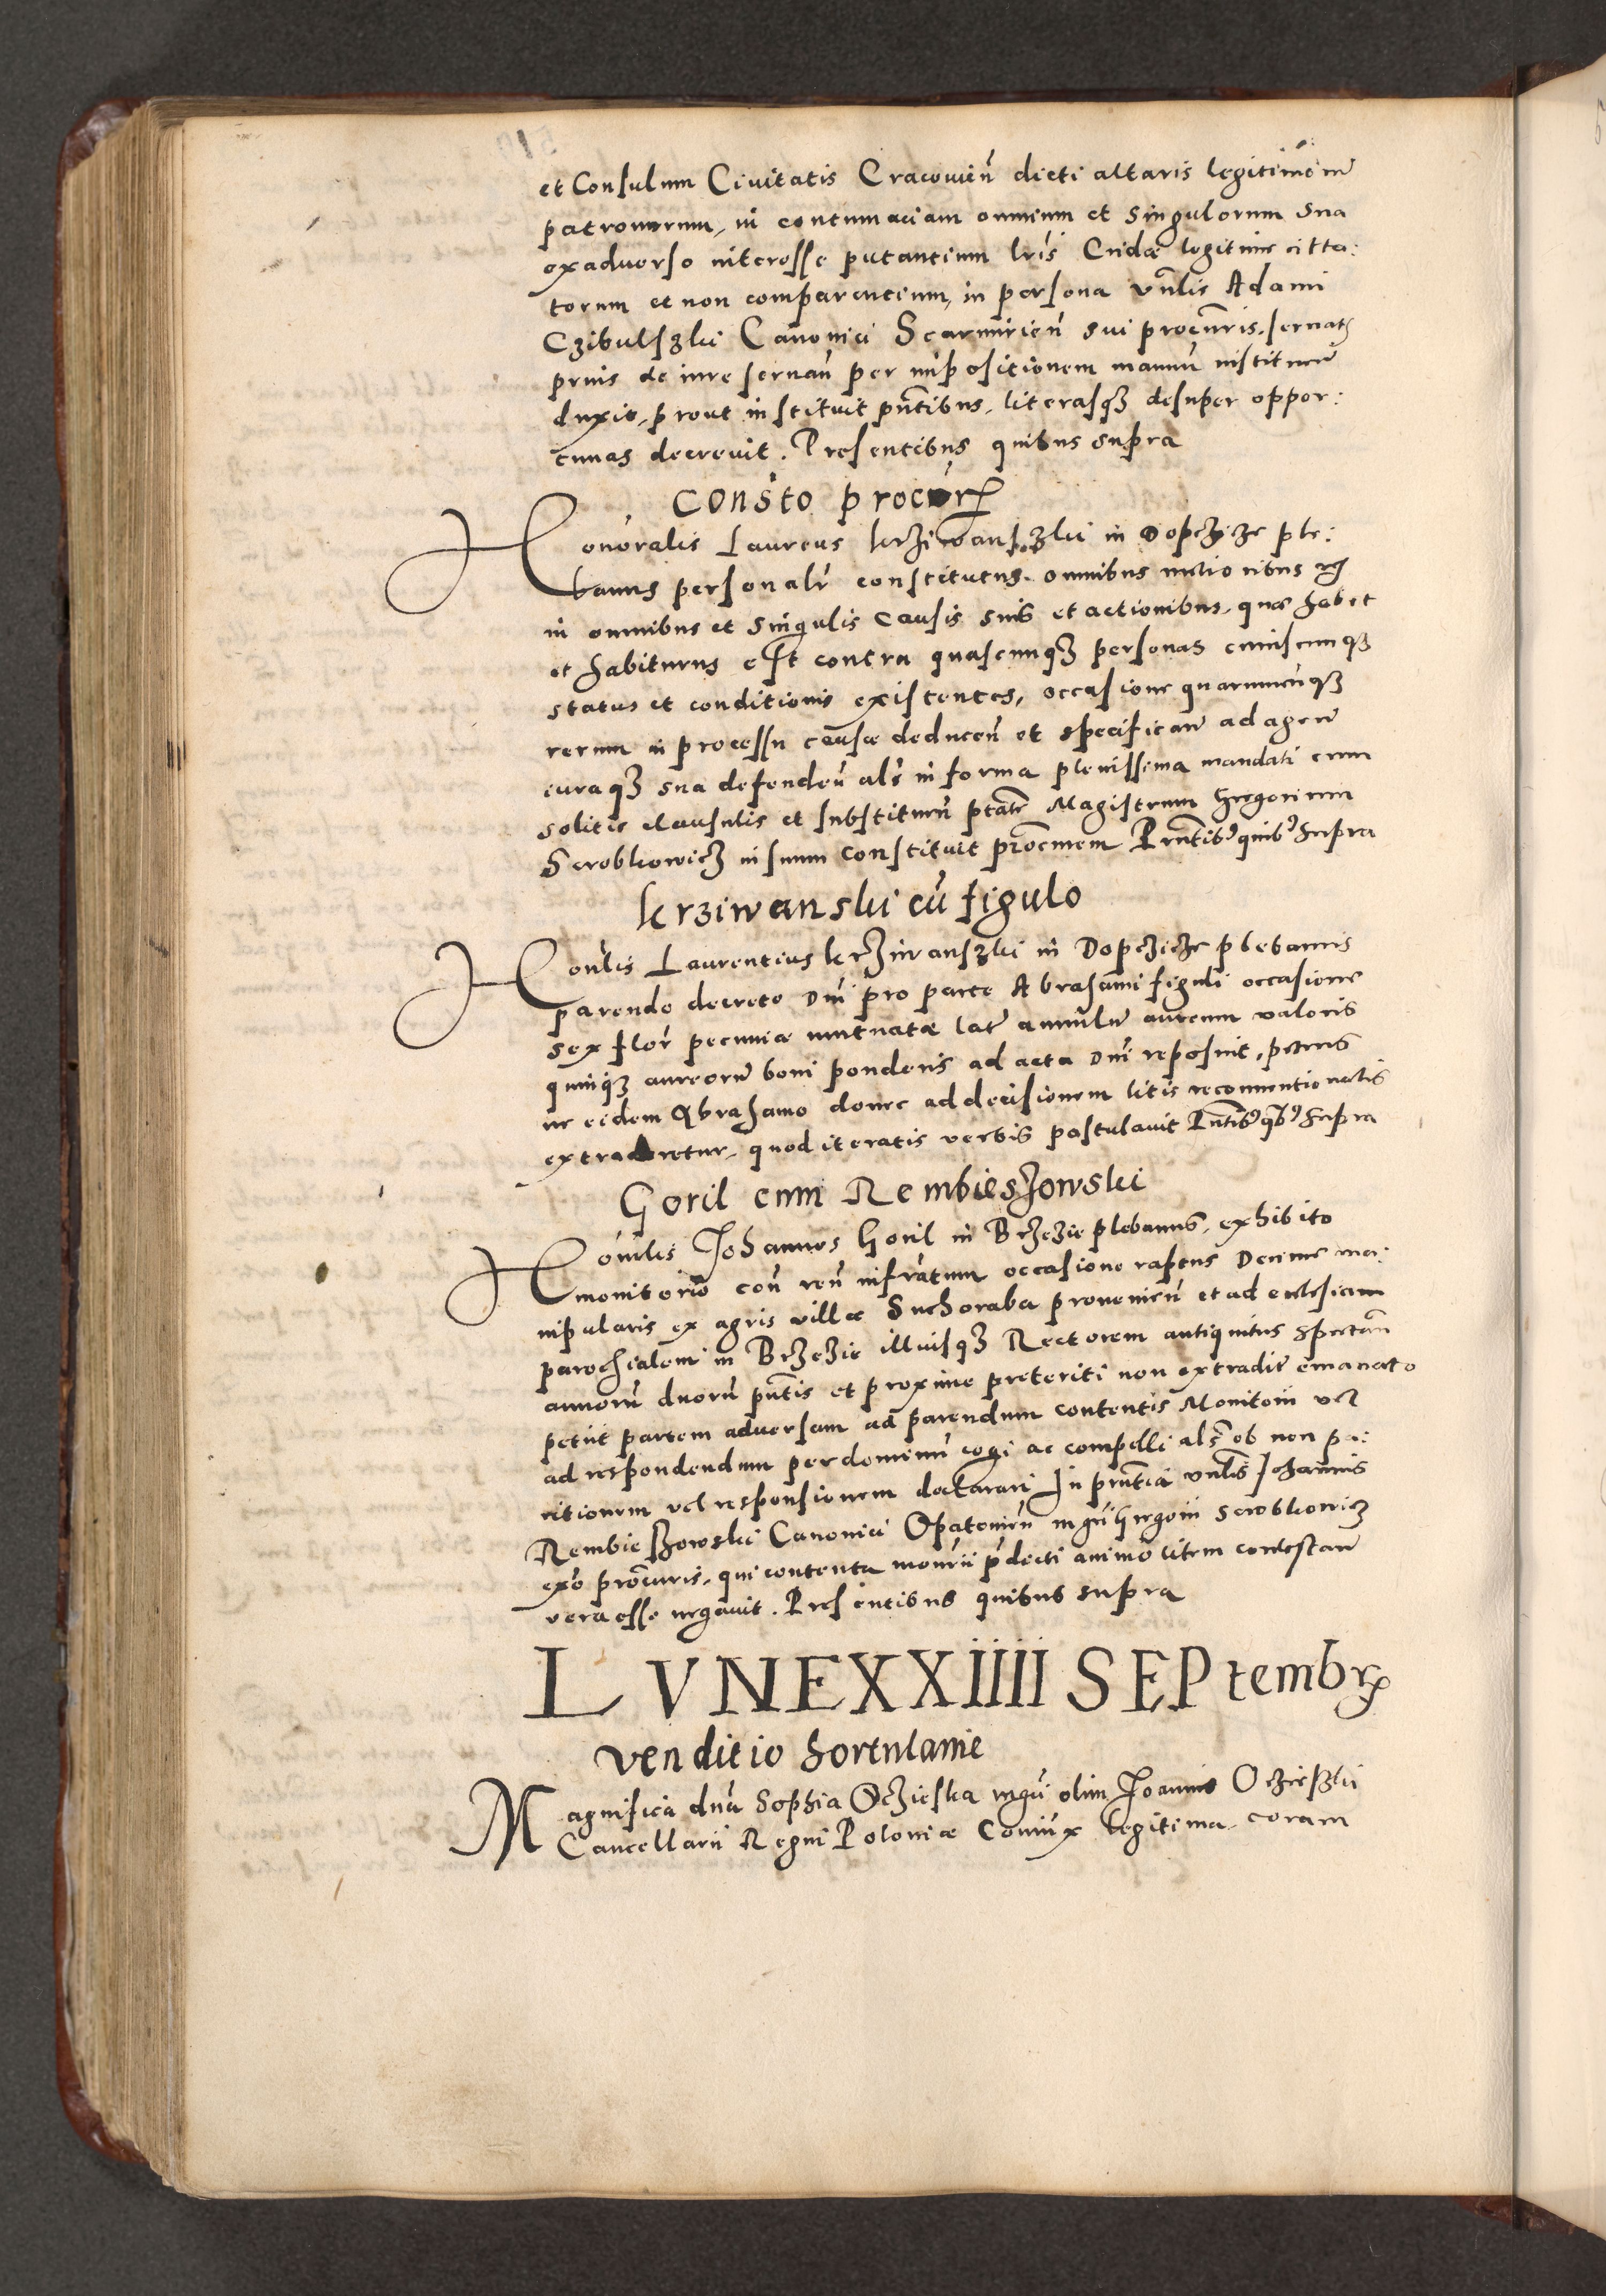 et Consulum Ciuitatis Cracouien̄ dicti altaris legitimorum
patronorum, in contumaciam omnium et singulorum sua
exaduerso interesse putantium lrīs Cridae legitime citta:
torum et non comparentium, in persona vnlis Adami
Czibulszki Canonici Scarmirien̄ sui procuris. seruatis
prius de iure seruan̄ per impositionem manuū instituen̄
duxit, prout instituit pn̄tibus, literasqȝ desuper oppor:
tunas decreuit. Presentibus quibus supra
Consto procur
Honoralis Laureus krziwanszki in Dopczicze ple:
banus personalr̄ constitutus. omnibus melioribus
in omnibus et singulis Causis suis et actionibus, quas habet
et habiturus est contra quascunqȝ personas cuiuscunqȝ
status et conditionis existentes, occasione quarumcunqȝ
rerum in processu causae deducen̄ et specifican̄ ad agen̄
iuraqȝ sua defenden̄ als̄ in forma plenissima mandati cum
solitis clausulis et substituen̄ ptate Magistrum Gregorium
Scrobkowicz in suum constituit procurem Pn̄tibȝ quibȝ supra
krziwanski cū figulo
Honlis Laurentius krziwanszki in Dopczicze plebanus
parendo decreto Dni pro parte Abrahami figuli occasione
sex flor̄ pecuniae mutuatae lat annulū aureum valoris
quinqȝ aureorū boni ponderis ad acta Dni reposuit, petens
ne eidem Abrahamo donec ad decisionem litis reconuentionalis
extraderetur, quod iteratis verbis postulauit Pn̄tibȝ qbȝ supra
Goril cum Rembieszowski
Honilis Johannes Goril in Brzezie plebanus, exhibito
monitorio con̄ ren̄ infratum occasione raptus Decime ma:
nipularis ex agris villae Suchoraba prouenien̄ et ad eccłesiam
parochialem in Brzezie illiusqȝ Rectorem antiquitus spectan̄
annorū duorū pn̄tis et proxime preteriti non extradit emanato
petiit partem aduersam ad parendum contentis Monitorii vel
ad respondendum per dominū cogi ac compelli als̄ ob non pa:
ritionem vel responsionem declarari In pn̄tia vnlis Johannis
Rembieszowski Canonici Opatouien̄ mgri Gregorii Scrobkowicz
exo procuris, qui contenta monrii p̄dicti animo litem contestan̄
vera esse negauit. Presentibus quibus supra
LVNE XXIIII SEPtembr
venditio hortulanie
Magnifica dnā Sophia Oczieska mgci olim Joannis Oczieszki
Cancellarii Regni Poloniae Coniūx legitima, coram